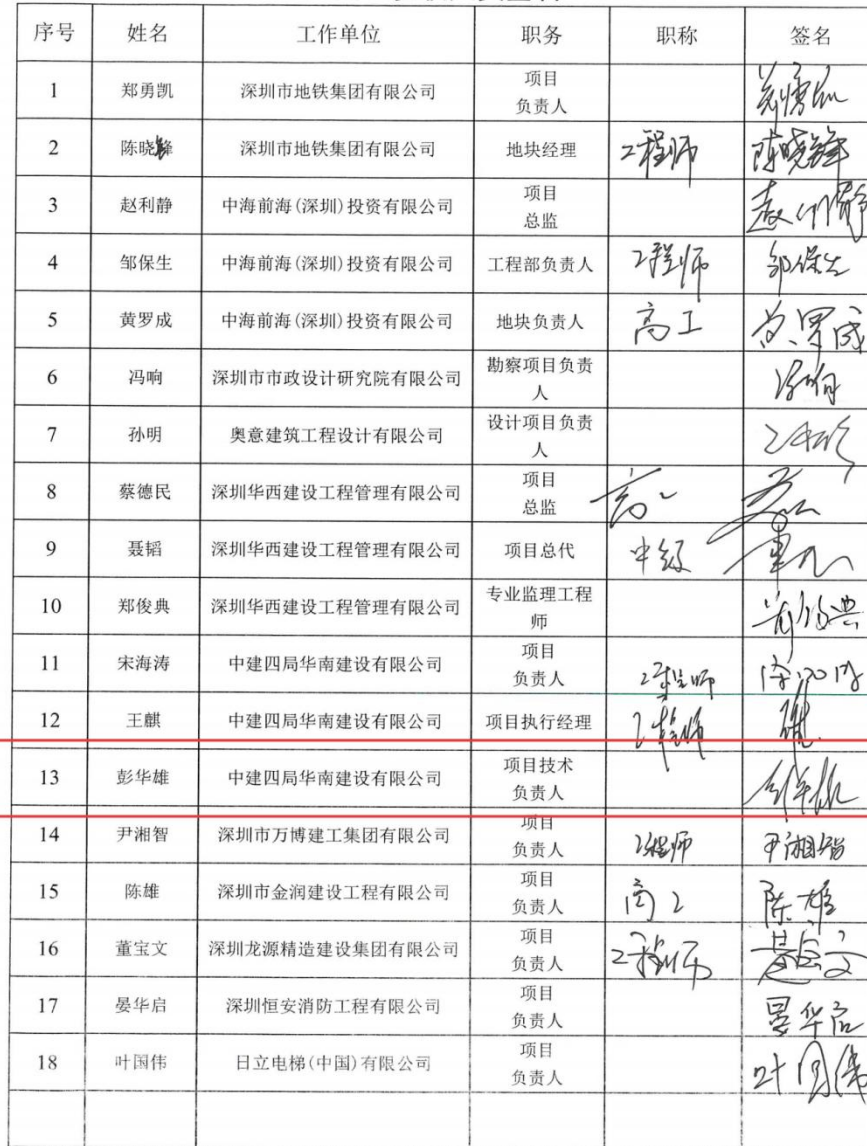 序号 姓名 工作单位 职务 职称 签名
项目
1 郑勇凯 深圳市地铁集团有限公司 负责人 郑勇凯
2 陈晓锋 深圳市地铁集团有限公司 地块经理 工程师 陈晓锋
项目
3 赵利静 中海前海(深圳)投资有限公司 总监 赵利静
4 邹保生 中海前海(深圳)投资有限公司 工程部负责人 工程师 邹保生
5 黄罗成 中海前海(深圳)投资有限公司 地块负责人 高工 黄罗成
勘察项目负责
6 冯响 深圳市市政设计研究院有限公司 人 冯响
设计项目负责
7 孙明 奥意建筑工程设计有限公司 人
项目
8 蔡德民 深圳华西建设工程管理有限公司 总监 高工
9 聂韬 深圳华西建设工程管理有限公司 项目总代 中级
专业监理工程
10 郑俊典 深圳华西建设工程管理有限公司 师 郑俊典
项目
11 宋海涛 中建四局华南建设有限公司 负责人 工程师
12 王麒 中建四局华南建设有限公司 项目执行经理 工程师
项目技术
13 彭华雄 中建四局华南建设有限公司 负责人
项目
14 尹湘智 深圳市万博建工集团有限公司 负责人 工程师 尹湘智
项目
15 陈雄 深圳市金润建设工程有限公司 负责人 高工 陈雄
项目
16 董宝文 深圳龙源精造建设集团有限公司 负责人 工程师 董宝文
项目
17 晏华启 深圳恒安消防工程有限公司 负责人 晏华启
项目
18 叶国伟 日立电梯(中国)有限公司 负责人 叶国伟